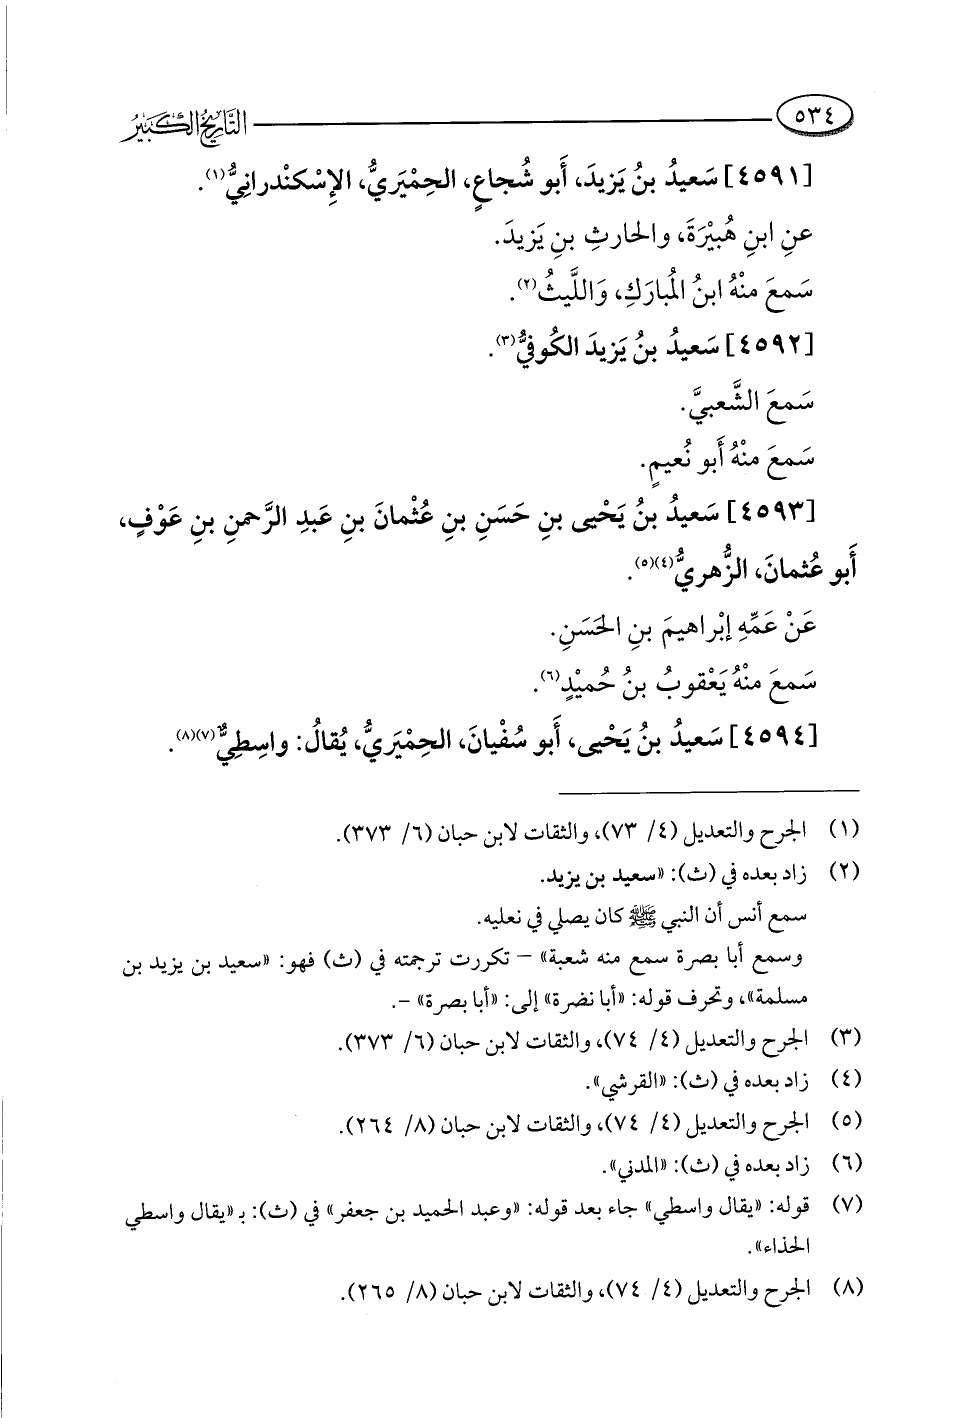 ٥٣٤ التَّارِيخُ الكَبِيرُ
[٤٥٩١] سَعيدُ بنُ يَزيدَ، أَبو شُجاعٍ، الحِمْيَريُّ، الإِسْكنْدرانِيُّ(١).
عنِ ابنِ هُبيْرَةَ، والحارثِ بنِ يَزيدَ.
سَمعَ منْهُ ابنُ المُبارَكِ، وَاللَّيثُ(٢).
[٤٥٩٢] سَعيدُ بنُ يَزيدَ الكُوفيُّ(٣).
سَمعَ الشَّعبيَّ.
سَمعَ منْهُ أَبو نُعيمٍ.
[٤٥٩٣] سَعيدُ بنُ يَحْيى بنِ حَسَنِ بنِ عُثْمانَ بنِ عَبدِ الرَّحمنِ بنِ عَوْفٍ،
أَبو عُثمانَ، الزُّهريُّ(٤)(٥).
عَنْ عَمِّهِ إبْراهيمَ بنِ الحَسَنِ.
سَمعَ منْهُ يَعْقوبُ بنُ حُميْدٍ(٦).
[٤٥٩٤] سَعيدُ بنُ يَحْيى، أَبو سُفْيانَ، الحِمْيَريُّ، يُقالُ: واسِطِيٌّ(٧)(٨).
(١) الجرح والتعديل (٤/ ٧٣)، والثقات لابن حبان (٦/ ٣٧٣).
(٢) زاد بعده في (ث): «سعيد بن يزيد.
سمع أنس أن النبي ﷺ كان يصلي في نعليه.
وسمع أبا بصرة سمع منه شعبة» – تكررت ترجمته في (ث) فهو: «سعيد بن يزيد بن
مسلمة»، وتحرف قوله: «أبا نضرة» إلى: «أبا بصرة» –.
(٣) الجرح والتعديل (٤/ ٧٤)، والثقات لابن حبان (٦/ ٣٧٣).
(٤) زاد بعده في (ث): «القرشي».
(٥) الجرح والتعديل (٤/ ٧٤)، والثقات لابن حبان (٨/ ٢٦٤).
(٦) زاد بعده في (ث): «المدني».
(٧) قوله: «يقال واسطي» جاء بعد قوله: «وعبد الحميد بن جعفر» في (ث): بـ «يقال واسطي
الحذاء».
(٨) الجرح والتعديل (٤/ ٧٤)، والثقات لابن حبان (٨/ ٢٦٥).